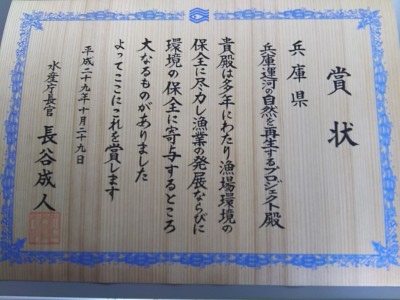 賞状
兵庫県
兵庫運河の自然を再生するプロジェクト殿
貴殿は多年にわたり漁場環境の
保全に尽力し漁業の発展ならびに
環境の保全に寄与するところ
大なるものがありました
よってここにこれを賞します
平成二十九年十月二十九日
水産庁長官 長谷成人